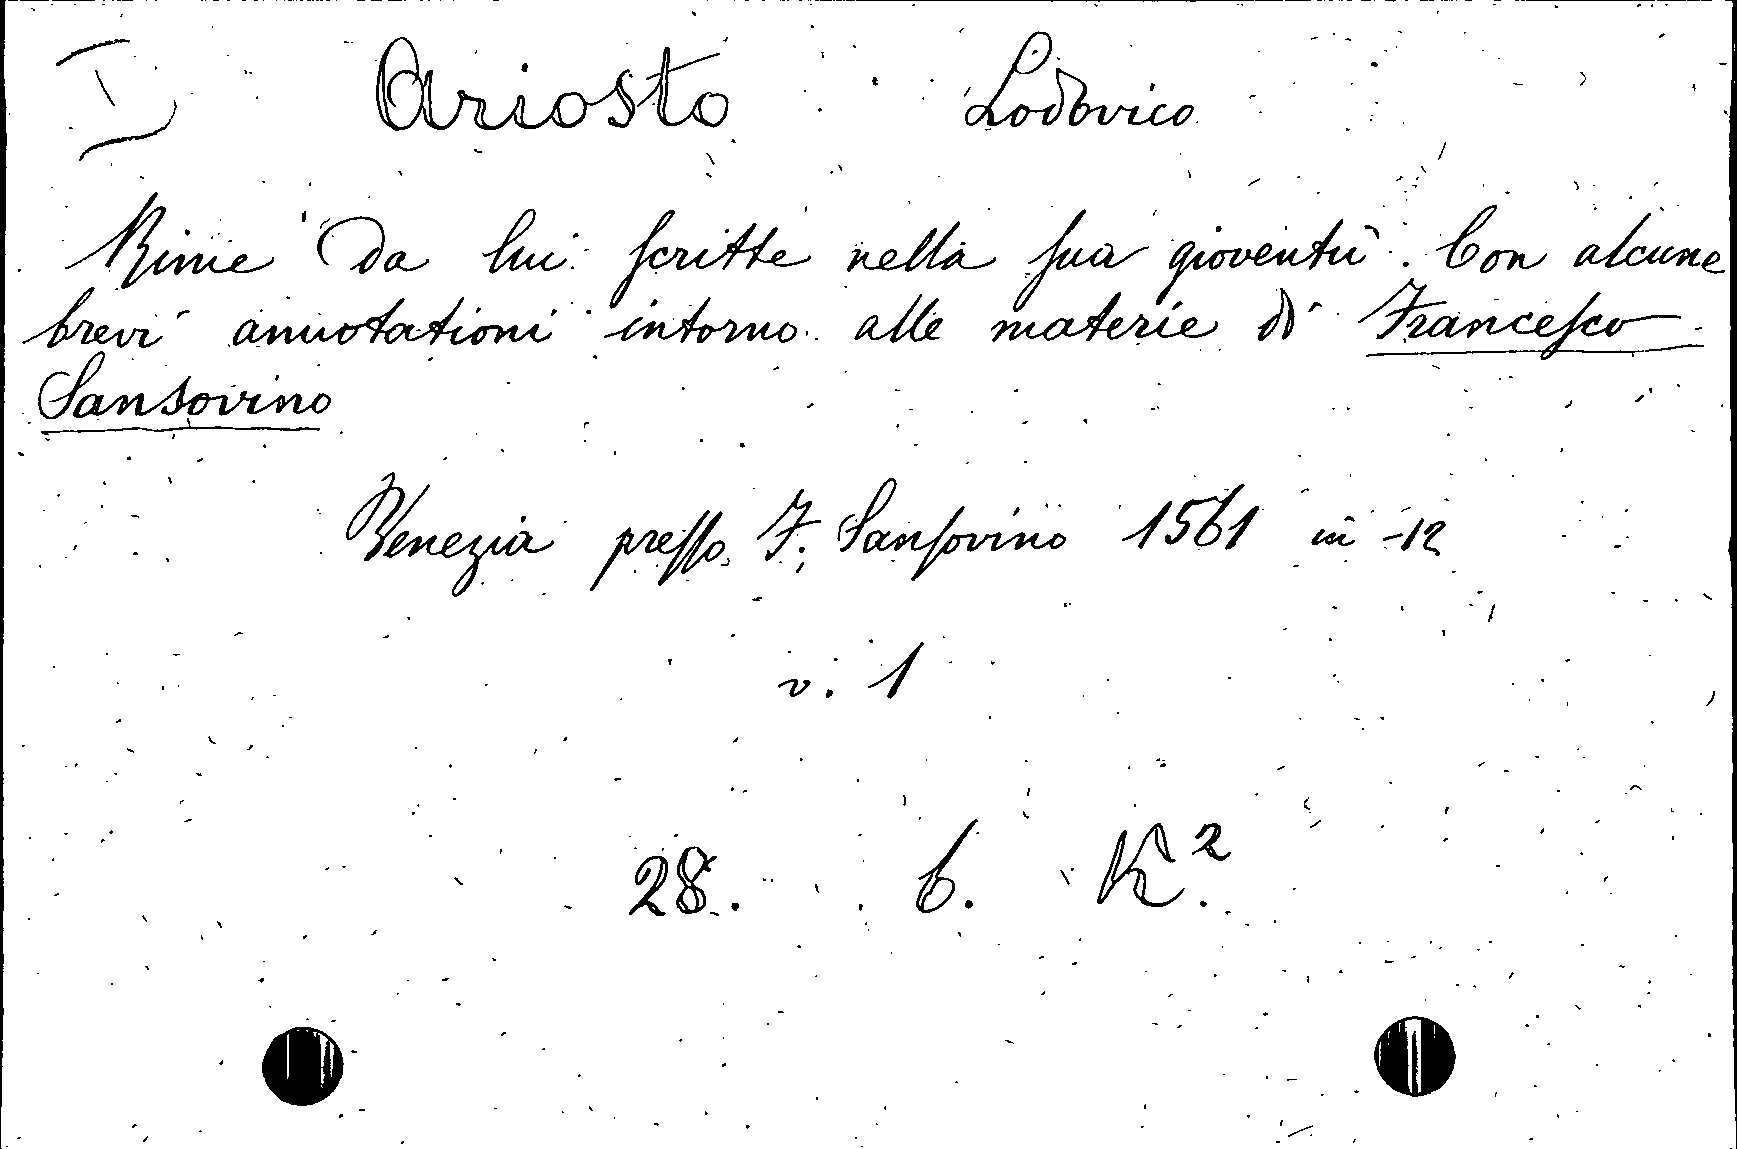 I Ariosto Lodovico
Rime da lui scritte nella sua gioventù. Con alcune
brevi annotationi intorno alle materie di Francesco
Sansovino
Venezia presso F. Sansovino 1561 in -12
v. 1
28. 6. K².